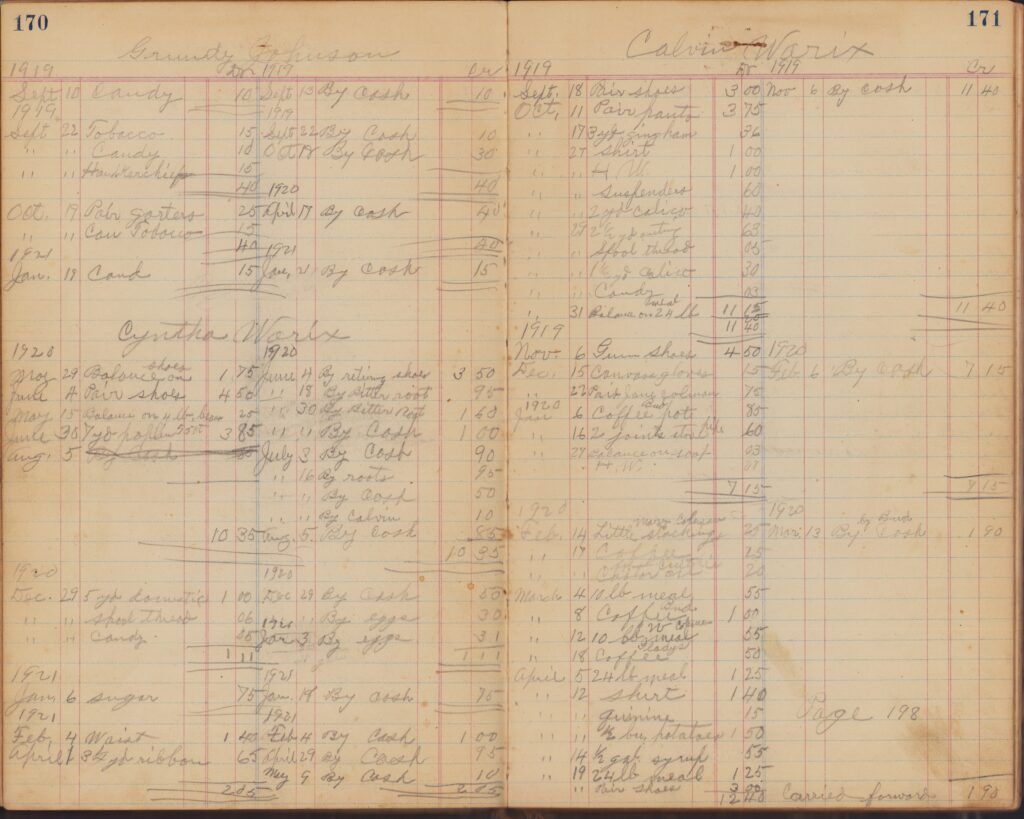 170
Grundy Johnson
1919 Dr 1919 Cr
Sept 10 Candy 10 Sept 13 By Cash 10
1919 1919
Sept 22 Tobacco 15 Sept 22 By Cash 10
" " Candy 10 Oct 18 By Cash 30
" " Hankerchief 15
40 1920 40
Oct. 19 Pair garters 25 April 17 By Cash 40
" " Can Tobacco 15
1921 40 1921 40
Jan. 19 Cand 15 Jan. 21 By Cash 15
Cyntha Warix
1920 1920
May 29 Balance on shoes 1 75 June 4 By retirng shoes 3 50
June 4 Pair shoes 4 50 " 18 By Bitter root 95
May 15 Balance on 4 lb. bean 25 " 30 By Bitter Root 1 60
June 30 7 yd poplin 55¢ 3 85 " " By Cash 1 00
Aug. 5 By Cash July 3 By Cash 90
" 16 By roots 95
" " By Cash 50
" " By Calvin 10
10 35 Aug. 5. By Cash 85
10 35
1920 1920
Dec. 29 5 yd domestic 1 00 Dec 29 By Cash 50
" " spool thread 06 " " By eggs 30
" " Candy 05 Jan 3 By eggs 31
1 11 1 11
1921 1921
Jan. 6 sugar 75 Jan. 18 By Cash 75
1921 1921
Feb. 4 Waist 1 40 Feb 4 By Cash 1 00
April 1 3 yd ribbon 65 April 29 By Cash 95
May 9 By Cash 10
2 05 2 05
171
Calvin Warix
1919 Dr 1919 Cr
Sept. 18 Pair shoes 3 00 Nov 6 By Cash 11 40
Oct, 11 Pair pants 3 75
" 17 3 yd gingham 36
" 27 Shirt 1 00
" " H. W. 1 00
" " Suspenders 60
" " 2 yd calico 40
" 29 63
" " Spool thread 05
" " 1 yd Calico 30
" " Candy 03
" 31 Balance on 24 lb meal 11 15
11 40 11 40
1919
Nov. 6 Gum shoes 4 50 1920
Dec. 15 Canvas gloves 15 Feb. 6 By Cash 7 15
" 22 Pair 75
1920
Jan 6 Coffee pot Bud 85
" 16 2 joints stove pipe 60
" 27 Balance on soap 03
" H. W.
7 15 7 15
1920 1920
Feb. 14 Little stockings 25 Mar. 13 By Cash by Bud 1 90
" 17 Coffee 25
" " Castor oil 20
March 4 10 lb meal 55
" 8 Coffee Bud 1 00
" 12 10 lb meal 55
" 18 Coffee Gladys 50
April 5 24 lb meal 1 25
" 12 Shirt 1 40
" " quinine 15 Page 198
" " ½ bu. potatoes 1 50
" 14 ½ gal syrup 55
" 19 24 lb meal 1 25
" " Pair shoes 3 00
12 40 Carried forward 1 90